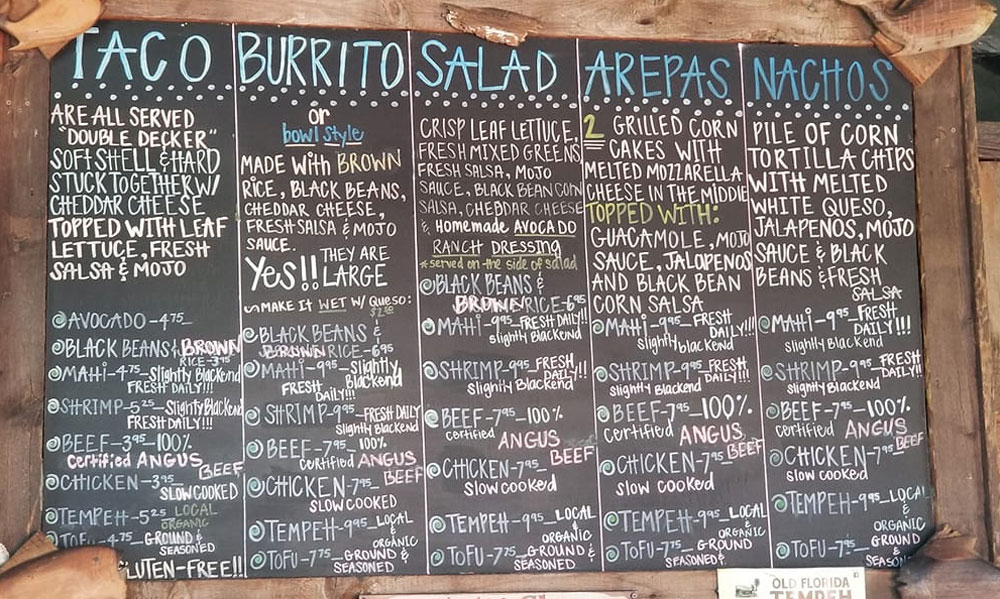 TACO
ARE ALL SERVED
"DOUBLE DECKER"
SOFT SHELL & HARD
STUCK TOGETHER W/
CHEDDAR CHEESE
TOPPED WITH LEAF
LETTUCE, FRESH
SALSA & MOJO
AVOCADO-4.75
BLACK BEANS & BROWN
RICE-3.95
MAHI-4.75-Slightly Blackend
FRESH DAILY!!!
SHRIMP-5.25-Slightly Blackend
FRESH DAILY!!!
BEEF-3.95-100%
certified ANGUS
BEEF
CHICKEN-3.95
SLOW COOKED
TEMPEH-5.25 LOCAL
ORGANIC
TOFU-4.75-GROUND &
SEASONED
GLUTEN-FREE!!
BURRITO
or
bowl style
MADE with BROWN
RICE, BLACK BEANS,
CHEDDAR CHEESE,
FRESH SALSA & MOJO
SAUCE.
Yes!! THEY ARE
LARGE
~MAKE IT WET W/ QUESO:
BLACK BEANS &
BROWN RICE-6.95
MAHI-9.95-Slightly
Blackend
FRESH
DAILY!!!
SHRIMP-9.95-FRESH DAILY
Slightly Blackend
BEEF-7.95-100%
certified ANGUS
BEEF
CHICKEN-7.95
SLOW COOKED
TEMPEH-9.95-LOCAL
&
ORGANIC
TOFU-7.75-GROUND
&
SEASONED
SALAD
CRISP LEAF LETTUCE,
FRESH MIXED GREENS
FRESH SALSA, MOJO
SAUCE, BLACK BEAN CORN
SALSA, CHEDDAR CHEESE
& Homemade AVOCADO
RANCH DRESSING
*served on the side of salad
BLACK BEANS &
BROWN RICE-6.95
MAHI-9.95-FRESH DAILY!!
slightly Blackend
SHRIMP-9.95-FRESH
DAILY!!
slightly Blackend
BEEF-7.95-100%
certified ANGUS
BEEF
CHICKEN-7.95
slow cooked
TEMPEH-9.95-LOCAL
&
ORGANIC
TOFU-7.75-GROUND &
SEASONED
AREPAS
2 GRILLED CORN
CAKES WITH
MELTED MOZZARELLA
CHEESE IN THE MIDDLE
TOPPED WITH:
GUACAMOLE, MOJO
SAUCE, JALAPENOS
AND BLACK BEAN
CORN SALSA
MAHI-9.95-FRESH
DAILY!!!
slightly blackend
SHRIMP-9.95-FRESH
DAILY!!!
slightly Blackend
BEEF-7.95-100%
certified ANGUS
BEEF
CHICKEN-7.95
slow cooked
TEMPEH-9.95-LOCAL
&
ORGANIC
TOFU-7.75-GROUND
&
SEASONED
NACHOS
PILE OF CORN
TORTILLA CHIPS
WITH MELTED
WHITE QUESO,
JALAPENOS, MOJO
SAUCE & BLACK
BEANS & FRESH
SALSA
MAHI-9.95-FRESH
DAILY!!!
slightly blackend
SHRIMP-9.95-FRESH
DAILY!!
slightly Blackend
BEEF-7.95-100%
certified ANGUS
BEEF
CHICKEN-7.95
slow cooked
TEMPEH-9.95-LOCAL
&
ORGANIC
TOFU-7.95-GROUND
&
OLD FLORIDA
TEMPEH